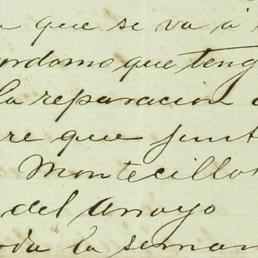 que se va á
ordomo que teng
la reparacion
re que junt
Montecillo
del Arroyo
oda la seman